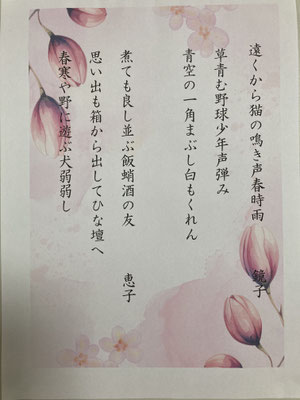 遠くから猫の鳴き声春時雨
鏡子
草青む野球少年声弾み
青空の一角まぶし白もくれん
煮ても良し並ぶ飯蛸酒の友
恵子
思い出も箱から出してひな壇へ
春寒や野に遊ぶ犬弱弱し